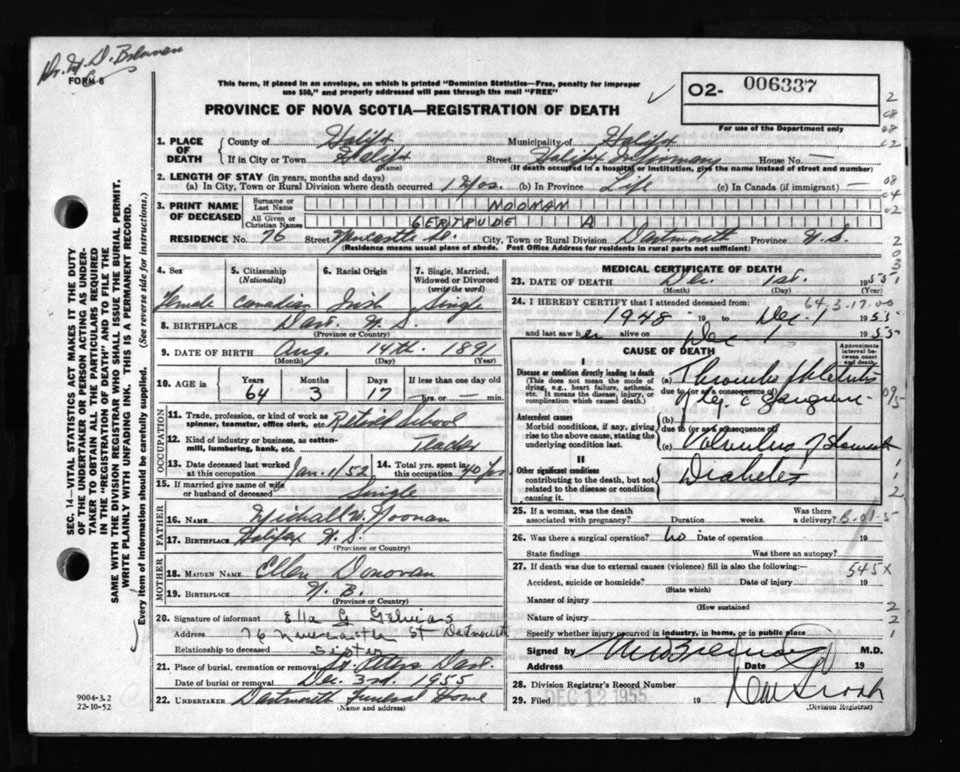 FORM 8
This form, if placed in an envelope, on which is printed "Dominion Statistics—Free, penalty for improper
use $50," and properly addressed will pass through the mail "FREE"
PROVINCE OF NOVA SCOTIA—REGISTRATION OF DEATH
O2- 006337
For use of the Department only
1. PLACE OF DEATH County of Halifx Municipality of Halifx
If in City or Town Halifx (Name) Street Halifax Infirmary House No. —
(If death occurred in a hospital or institution, give the name instead of street and number)
2. LENGTH OF STAY (in years, months and days)
(a) In City, Town or Rural Division where death occurred (b) In Province Life (c) In Canada (if immigrant) —
3. PRINT NAME OF DECEASED Surname or Last Name NOONAN
All Given or Christian Names GERTRUDE A
RESIDENCE No. 76 Street Newcastle St. City, Town or Rural Division Dartmouth Province N.S.
(Residence means usual place of abode. Post Office Address for rural parts not sufficient)
SEC. 14—VITAL STATISTICS ACT MAKES IT THE DUTY
OF THE UNDERTAKER OR PERSON ACTING AS UNDER-
TAKER TO OBTAIN ALL THE PARTICULARS REQUIRED
IN THE "REGISTRATION OF DEATH" AND TO FILE THE
SAME WITH THE DIVISION REGISTRAR WHO SHALL ISSUE THE BURIAL PERMIT.
WRITE PLAINLY WITH UNFADING INK. THIS IS A PERMANENT RECORD.
Every item of information should be carefully supplied. (See reverse side for instructions.)
4. Sex 5. Citizenship (Nationality) 6. Racial Origin 7. Single, Married, Widowed or Divorced (write the word)
Female Canadian Irish Single
8. BIRTHPLACE Dart. N.S.
(Province or Country)
9. DATE OF BIRTH Aug. 14th. 1891
(Month) (Day) (Year)
10. AGE in Years Months Days If less than one day old
64 3 17 hrs. or — min.
OCCUPATION
11. Trade, profession, or kind of work as spinner, teamster, office clerk, etc. Retired School
12. Kind of industry or business, as cotton-mill, lumbering, bank, etc. Teacher
13. Date deceased last worked at this occupation Jan. 1/52 14. Total yrs. spent in this occupation 40 yrs
15. If married give name of wife or husband of deceased Single
FATHER
16. NAME Michall W. Noonan
17. BIRTHPLACE Halifax N.S.
(Province or Country)
MOTHER
18. MAIDEN NAME Ellen Donovan
19. BIRTHPLACE N.B.
(Province or Country)
20. Signature of informant Ella G
Address 76 Newcastle St Dartmouth
Relationship to deceased Sister
21. Place of burial, cremation or removal St. Peters Dart.
Date of burial or removal Dec. 3rd. 1955
22. UNDERTAKER Dartmouth Funeral Home
(Name and address)
9004-3.2
22-10-52
MEDICAL CERTIFICATE OF DEATH
23. DATE OF DEATH Dec. 1st. 1955
(Month) (Day) (Year)
24. I HEREBY CERTIFY that I attended deceased from: 64-3-17.00
1948 19 to Dec-1 1955
and last saw her alive on Dec 1 1955
CAUSE OF DEATH
Approximate interval between onset and death
I
Disease or condition directly leading to death (This does not mean the mode of dying, e.g., heart failure, asthenia, etc. It means the disease, injury, or complication which caused death.)
(a) Thrombo Phlebitis
due to (or as a consequence of)
Leg c Gangrene
Antecedent causes
Morbid conditions, if any, giving rise to the above cause, stating the underlying condition last.
(b)
due to (or as a consequence of)
(c) Volvulus of Stomach
II
Other significant conditions contributing to the death, but not related to the disease or condition causing it.
Diabetes
25. If a woman, was the death associated with pregnancy? Duration weeks. Was there a delivery?
26. Was there a surgical operation? no Date of operation 19
State findings Was there an autopsy?
27. If death was due to external causes (violence) fill in also the following:— 545x
Accident, suicide or homicide? Date of injury 19
(State which)
Manner of injury
(How sustained
Nature of injury
Specify whether injury occurred in industry, in home, or in public place
Signed by M.D.
Address Date 19
28. Division Registrar's Record Number
29. Filed DEC 12 1955 19
(Division Registrar)